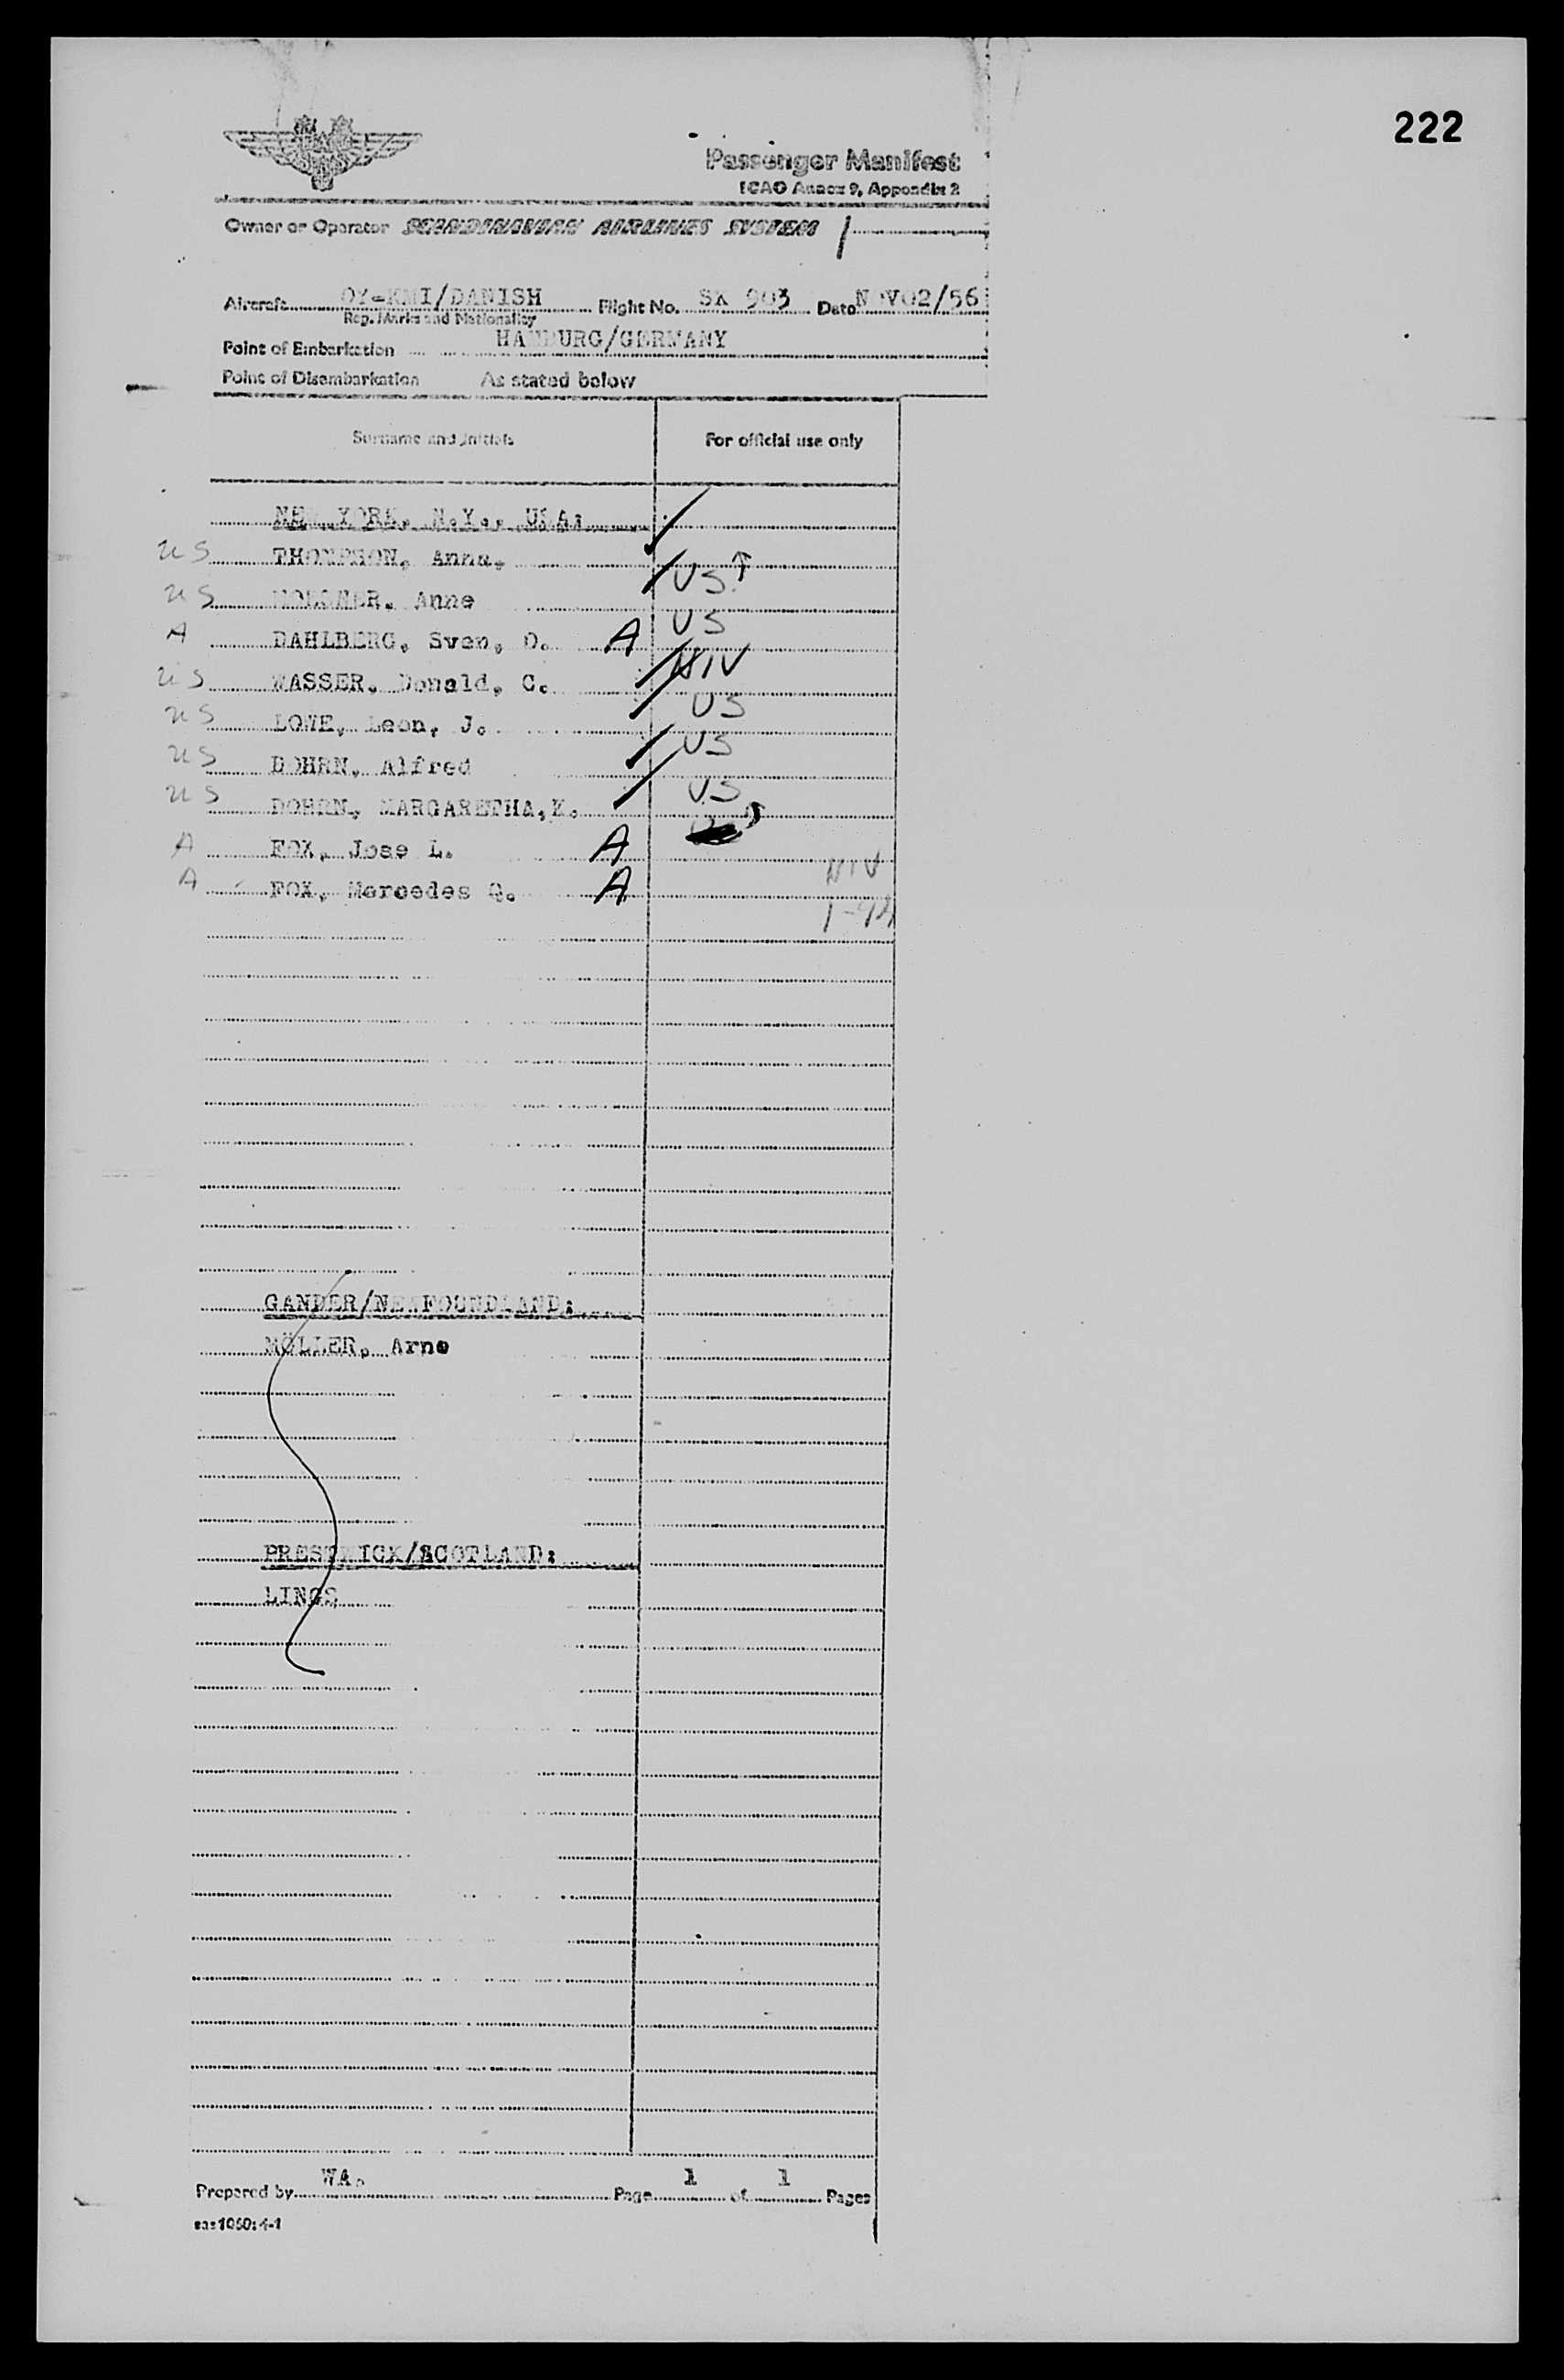 222
Passenger Manifest
ICAO Annex 9, Appendix 2
Owner or Operator SCANDINAVIAN AIRLINES SYSTEM
Aircraft OY-KMI/DANISH Flight No. SK 903 Date NOV02/56
Reg. Marks and Nationality
Point of Embarkation HAMBURG/GERMANY
Point of Disembarkation As stated below
Surname and Initials For official use only
NEW YORK, N.Y., USA:
US THOMPSON, Anna.
US Anne US
A DAHLBERG, Sven, O. A US
US WASSER, Donald, C. NIV
US LOWE, Leon, J. US
US DOHRN, Alfred US
US DOHRN, MARGARETHA, K. US
A FOX, Jose L. A
A FOX, Mercedes Q. A NIV
I-94
GANDER/NEWFOUNDLAND:
MÖLLER, Arne
PRESTWICK/SCOTLAND:
LINGS
Prepared by WA. Page 1 of 1 Pages
sas 1060:4-1